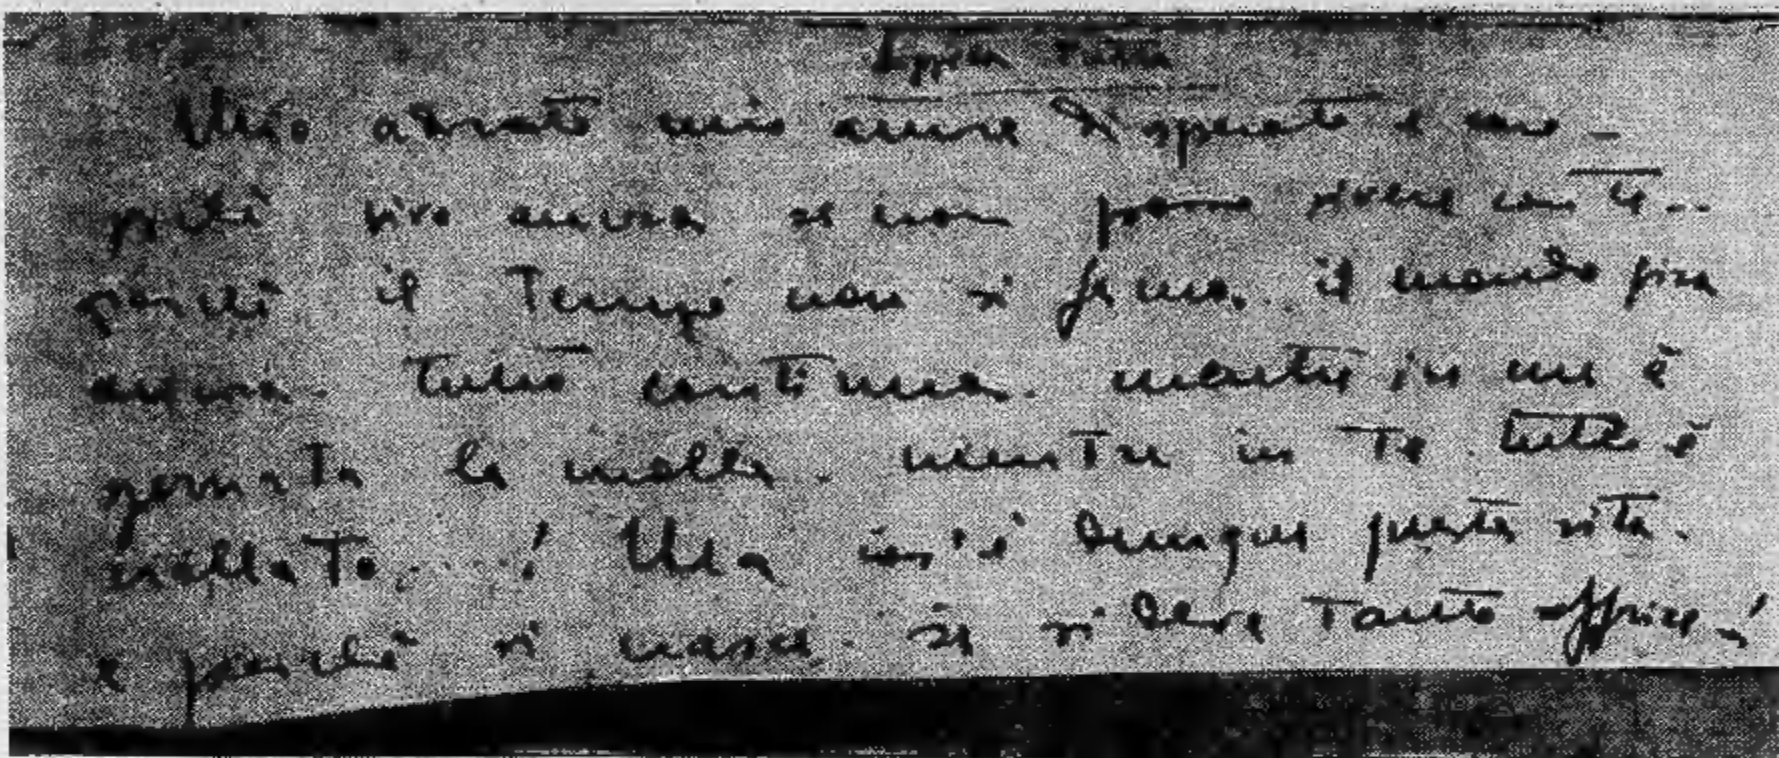 Mio adorato mio amore disperato e
perché vivo ancora se non posso vivere con te..
perché il Tempo non si ferma. il mondo gira
ancora. Tutto continua. mentre in me è
spezzata la molla. mentre in Te tutto è
crollato..! Ma cos'è dunque questa vita.
e perché si nasce. se si deve Tanto soffrire..!